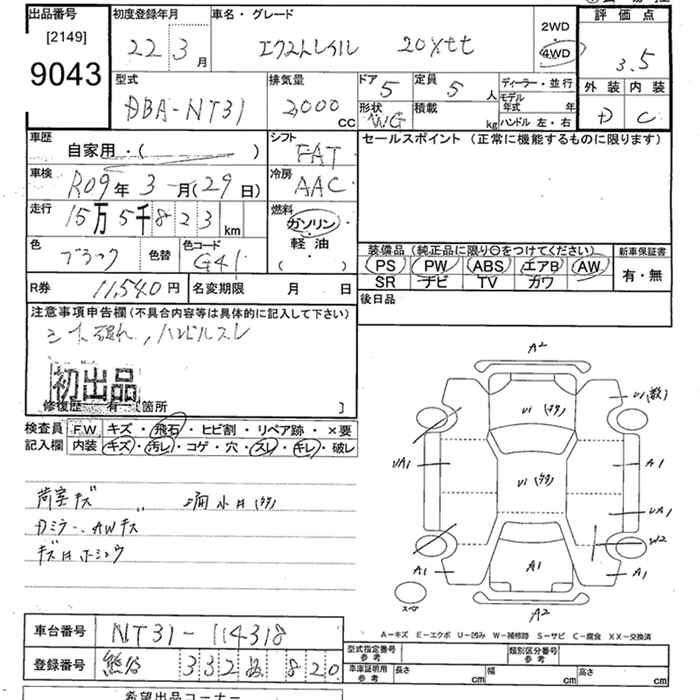 出品番号 初度登録年月 車名・グレード 評価点
[2149] 22 3月 エクストレイル 20Xtt 2WD 4WD 3.5
9043
型式 排気量 ドア 定員 ディーラー・並行 外装 内装
DBA-NT31 2,000 CC 5 5人 モデル年式 年 D C
形状 WG 積載 kg ハンドル 左・右
車歴 シフト セールスポイント (正常に機能するものに限ります)
自家用・( ) FAT
車検 冷房
R09年 3月(29日) AAC
走行 燃料
15万5千823km ガソリン
軽油
( )
色 色替 色コード 装備品 (純正品に限り○をつけてください) 新車保証書
ブラック G41 PS PW ABS エアB AW 有・無
SR ナビ TV カワ
R券 11,540円 名変期限 月 日 後日品
注意事項申告欄(不具合内容等は具体的に記入して下さい)
シート破れ, ハンドルスレ
初出品
修復歴 有 箇所
検査員 FW キズ・飛石・ヒビ割・リペア跡・×要
記入欄 内装 キズ・汚レ・コゲ・穴・スレ・キレ・破レ
荷室キズ
Dミラー、AWキズ
A2
U1
U1
UA1
A1
UA1
W2
A1
A1
A1
A2
スペア
A-キズ E-エクボ U-凹み W-補修跡 S-サビ C-腐食 XX-交換済
車台番号 NT31-114318 型式指定番号 参考 類別区分番号 参考
登録番号 熊谷 332 820 車庫証明用 参考 長さ cm 幅 cm 高さ cm
希望出品コーナー